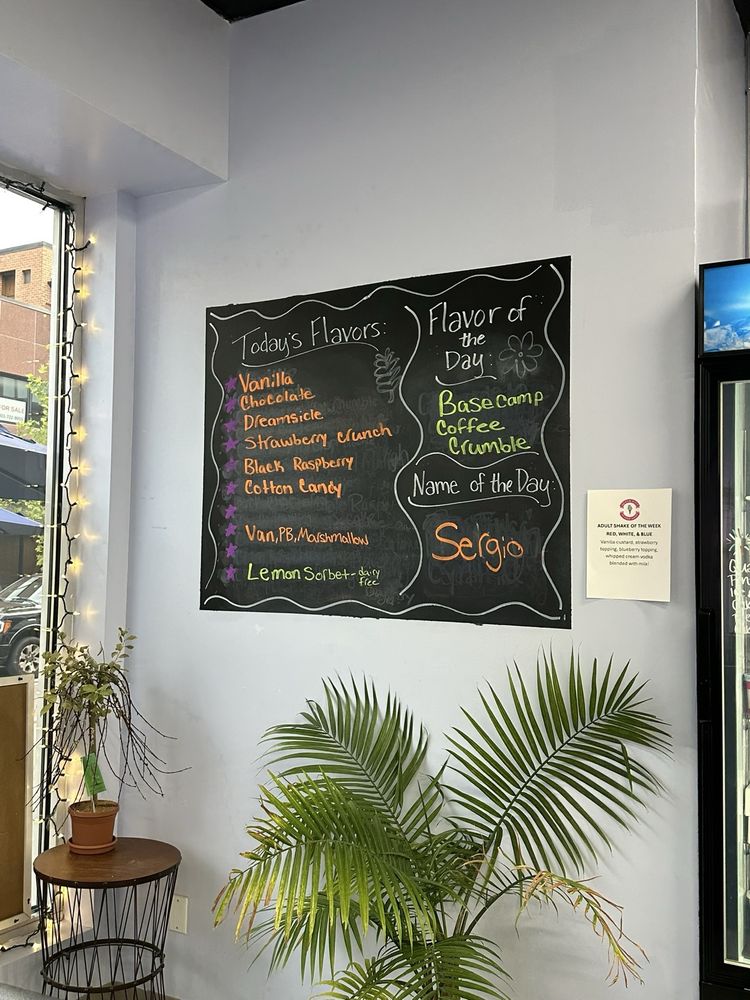 Today's Flavors:
Vanilla
Chocolate
Dreamsicle
Strawberry Crunch
Black Raspberry
Cotton Candy
Van, PB, Marshmallow
Lemon Sorbet - dairy
free
Flavor of
the
Day:
Basecamp
Coffee
Crumble
Name of the Day:
Sergio
ADULT SHAKE OF THE WEEK
RED, WHITE, & BLUE
Vanilla custard, strawberry
topping, blueberry topping,
whipped cream vodka
blended with milk!
FOR SALE